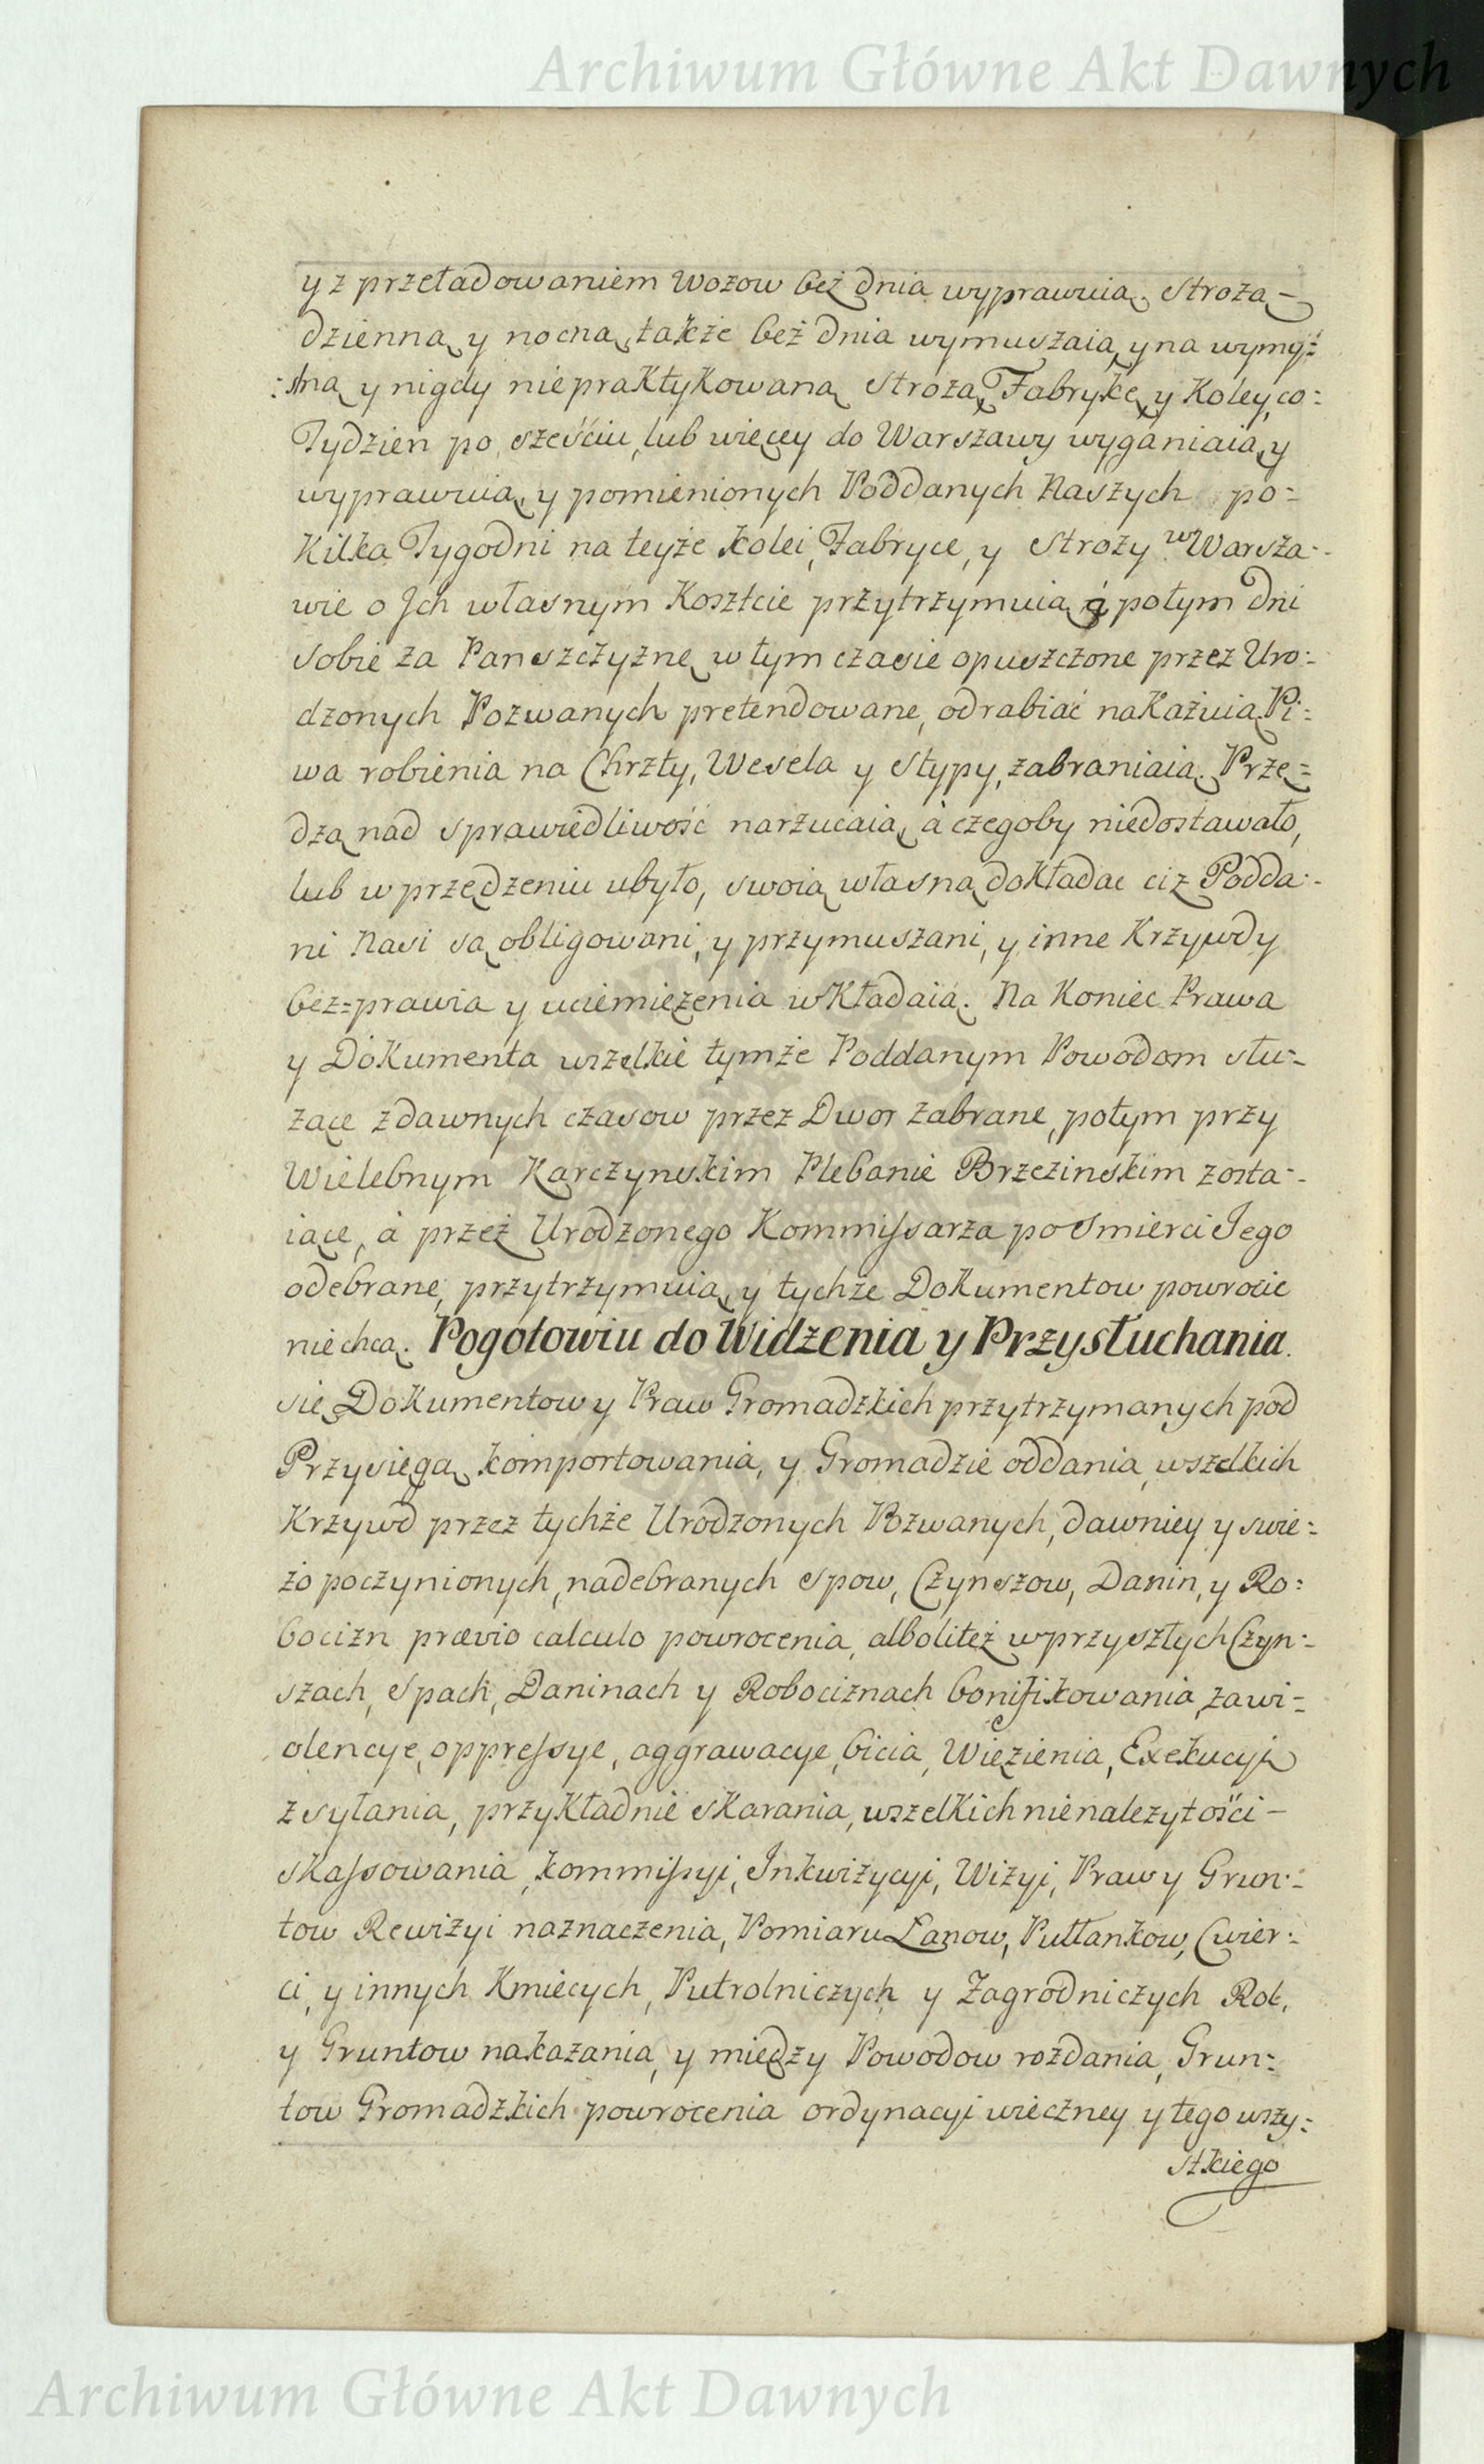 Archiwum Główne Akt Dawnych
y z przeładowaniem wozow bez dnia wyprawuią. Strożą
dzienną y nocną także bez dnia wymuszaią y na wymy=
:slną y nigdy niepraktykowaną Strożą Fabrykę y Koley, co:
Tydzien po sześciu, lub więcey do Warszawy wyganiaią y
wyprawuią y pomienionych Poddanych Naszych po=
kilka Tygodni na teyże kolei, Fabryce, y Stroży w Warsza:
wie o Jch własnym Koszłcie przytrzymuią á potym dni
sobie za Panszczyznę w tym czasie opuszczone przez Uro:
dzonych Pozwanych pretendowane, odrabiać nakazuią Pi:
wa robienia na Chrzty, Wesela y Stypy, zabraniaią. Przę=
dzą nad sprawiedliwość narzucaią, á czegoby niedostawało,
lub w przędzeniu ubyło, swoią własną dokładac ciz Podda:
ni Nasi są obligowani, y przymuszani, y inne Krzywdy
bez=prawia y uciemięzenia wkładaią. Na Koniec Prawa
y Dokumenta wszelkie tymże Poddanym Powodom słu:
zące z dawnych czasow przez Dwor zabrane, potym przy
Wielebnym Karczynskim Plebanie Brzezinskim zosta:
iące, á przez Urodzonego Kommissarza po Smierci Jego
odebrane, przytrzymuią y tychże Dokumentow powrocic
niechcą. Pogotowiu do Widzenia y Przysłuchania.
się Dokumentow y Praw Gromadzkich przytrzymanych pod
Przysięgą komportowania, y Gromadzie oddania, wszelkich
Krzywd przez tychże Urodzonych Pozwanych, dawniey y swie:
żo poczynionych, nadebranych Spow, Czynszow, Danin, y Ro:
bocizn prævio calculo powrocenia, alboliteż w przyszłych Czyn:
szach, Spach, Daninach y Robociznach bonifikowania, za wi=
olencye, oppressye, aggrawacye, bicia, Więzienia, Exekucyi
zsyłania, przykładnie skarania, wszelkich nienalezytości -
skassowania, kommissyi, Inkwizycyi, Wizyi, Praw y Grun:
tow Rewizyi naznaczenia, Pomiaru Łanow, Pułłankow, Cwier:
ci, y innych Kmiecych, Pułrolniczych y Zagrodniczych Rol,
y Gruntow nakazania, y między Powodow rozdania, Grun:
tow Gromadzkich powrocenia ordynacyi wieczney y tego wszy:
stkiego
Archiwum Główne Akt Dawnych